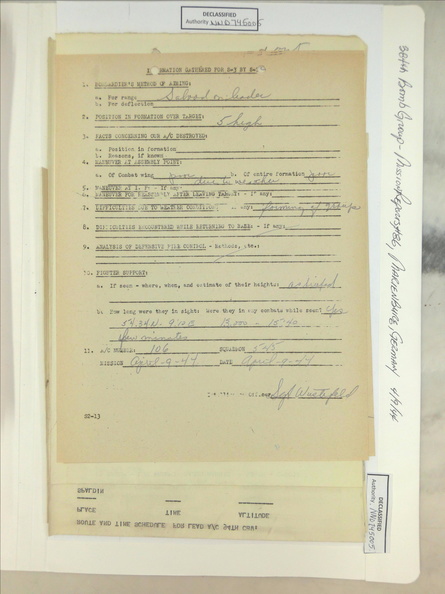 DECLASSIFIED
Authority NND 745005
INFORMATION GATHERED FOR S-3 BY S-2
1. BOMBARDIER'S METHOD OF AIMING:
a. For range Salvo on leader
b. For deflection
2. POSITION IN FORMATION OVER TARGET:
5 high
3. FACTS CONCERNING OUR A/C DESTROYED:
a. Position in formation
b. Reasons, if known
4. MANEUVER AT ASSEMBLY POINT:
a. Of Combat wing poor b. Of entire formation poor
due to weather
5. MANEUVER AT I.P. - If any:
6. MANEUVER FOR AFTER LEAVING TARGET: - if any:
7. DIFFICULTIES DUE TO WEATHER CONDITIONS - if any: forming of groups
8. DIFFICULTIES ENCOUNTERED WHILE RETURNING TO BASE - if any:
9. ANALYSIS OF DEFENSIVE FIRE CONTROL - methods, etc.:
10. FIGHTER SUPPORT:
a. If seen - where, when, and estimate of their height:
b. How long were they in sight: Were they in any combats while seen? yes
54:34N - 9:10E 13,000 - 15:40
few minutes
11. A/C NUMBER: 106 SQUADRON 545
MISSION April-9-44 DATE April-9-44
Sgt
S2-13
ROUTE AND TIME SCHEDULE FOR LEAD A/C 94TH CBW:
PLACE TIME ALTITUDE
SPALDIN
384th Bomb Group - Mission Reports #86, Marienburg, Germany 4/9/44
DECLASSIFIED
Authority: NND 745005